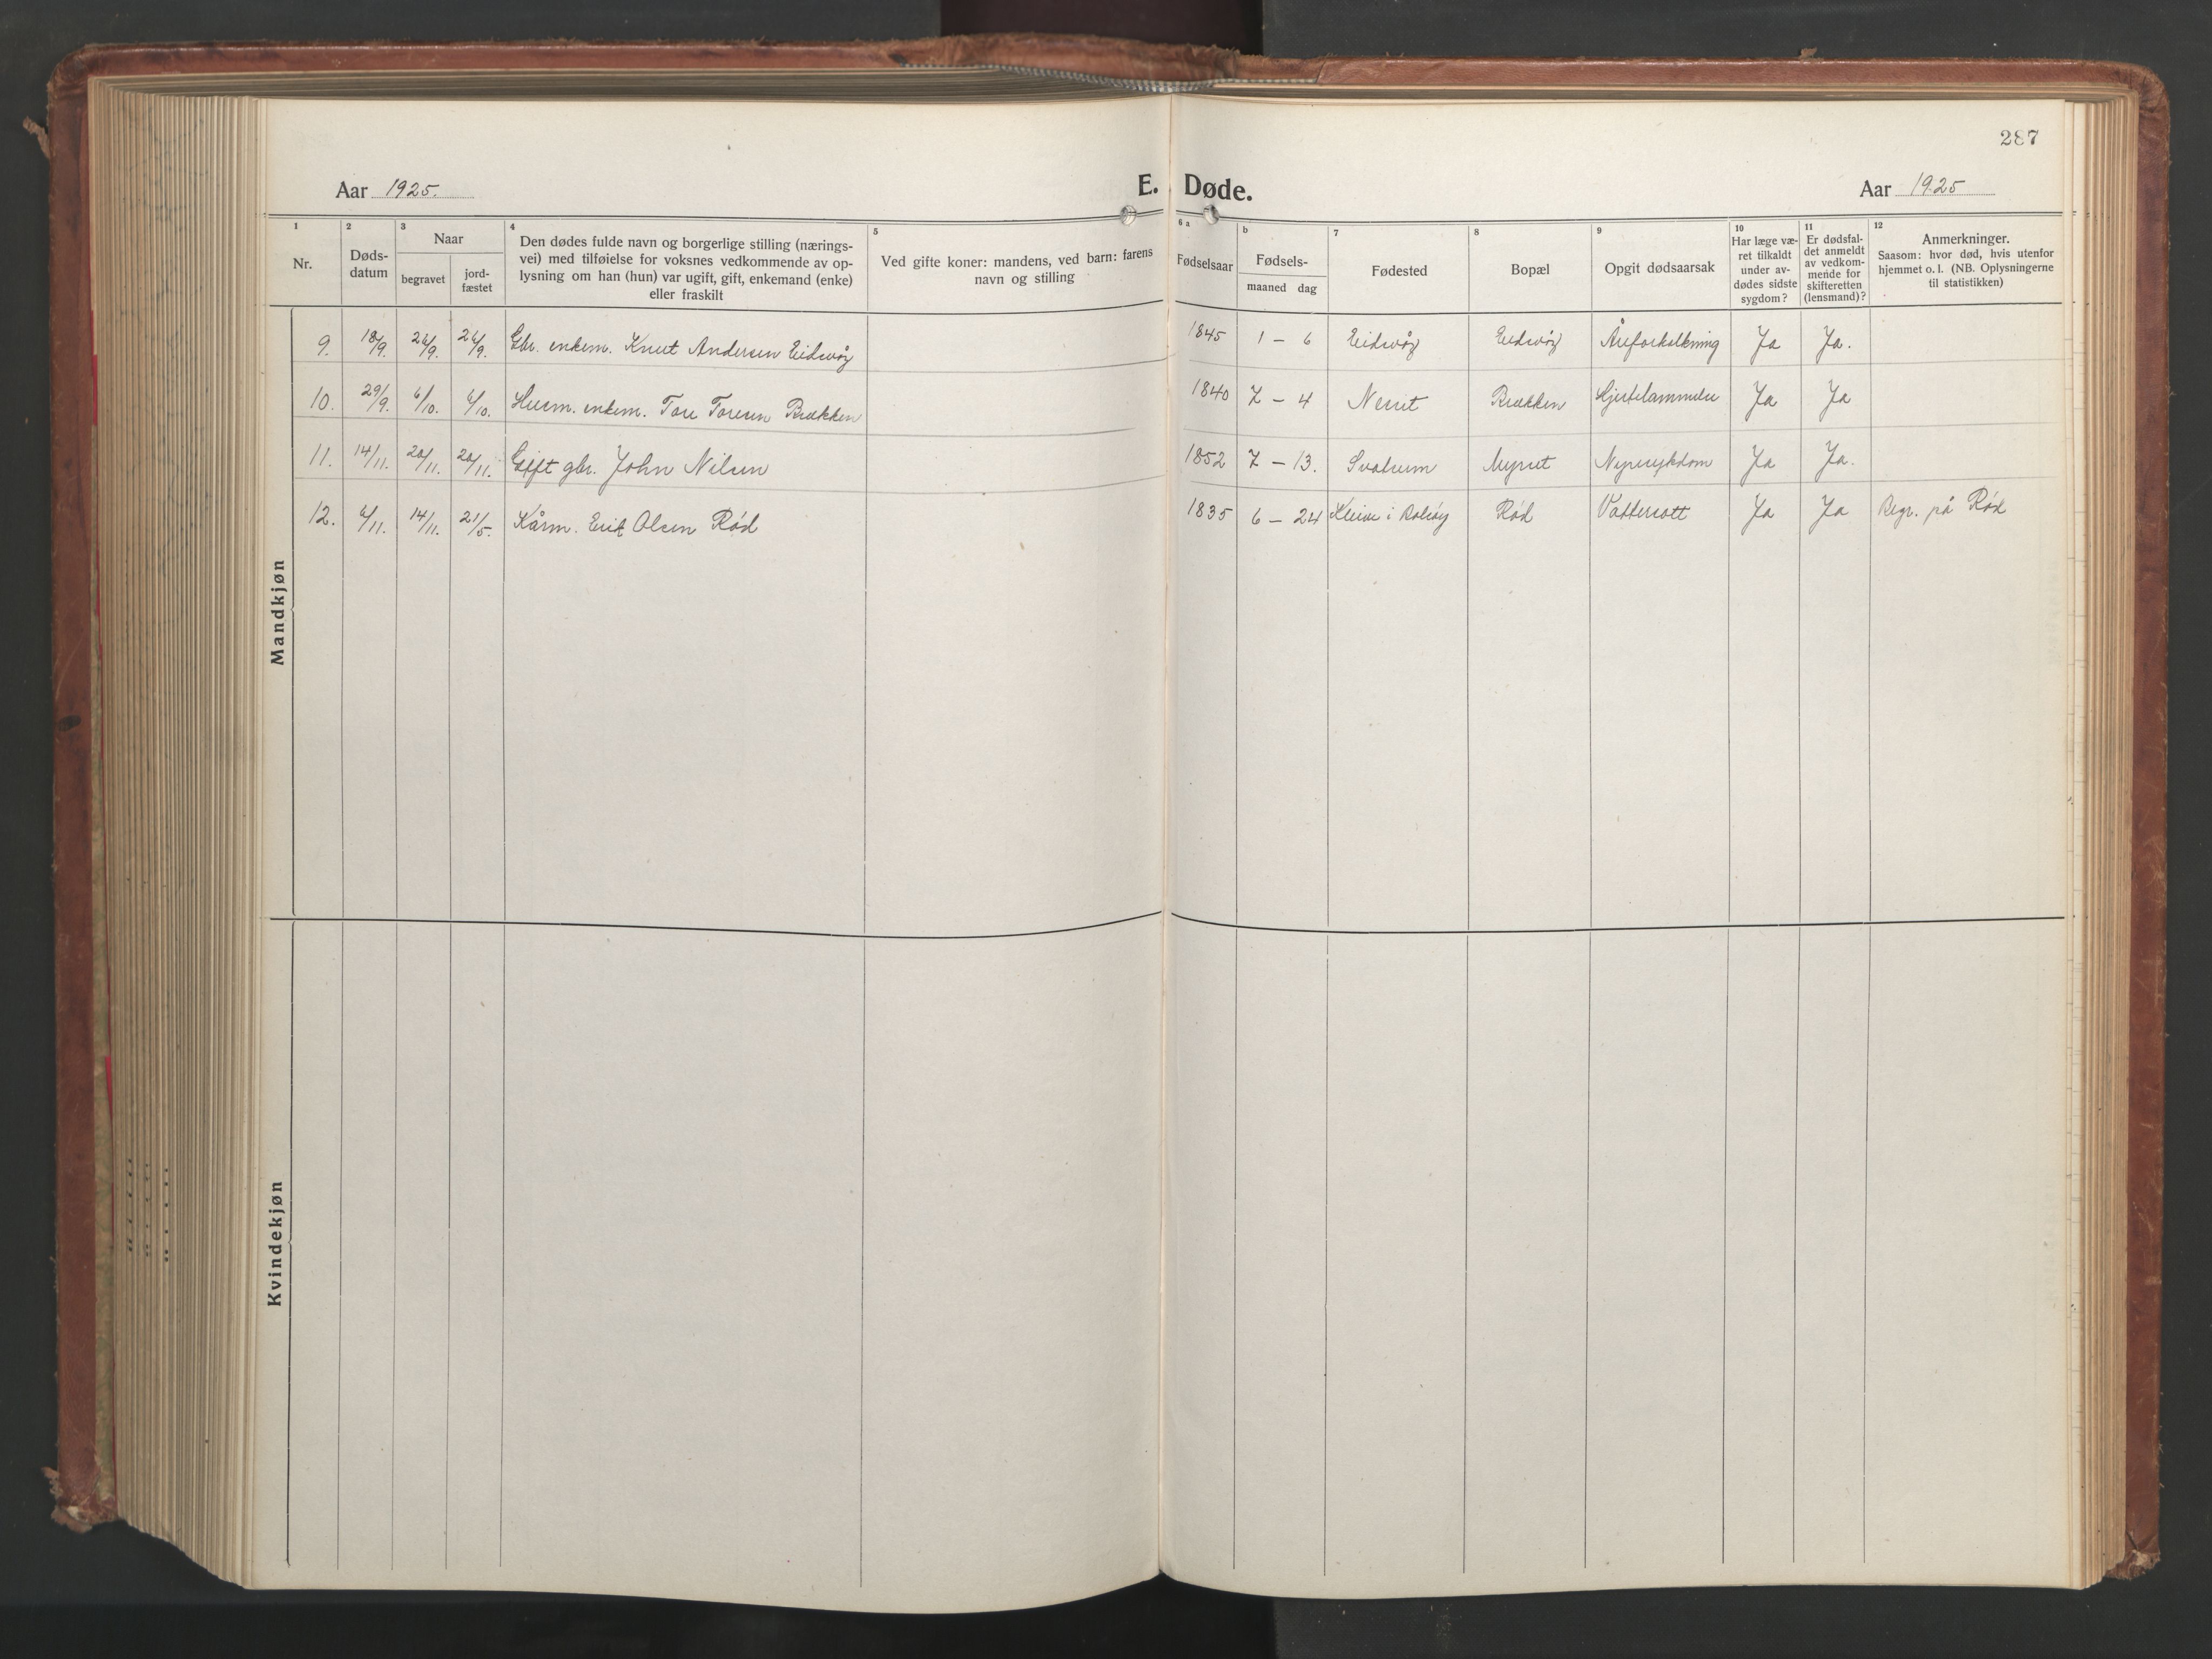 287
Aar 1925. E. Døde. Aar 1925
1 2 3 4 5 6 a b 7 8 9 10 11 12
Nr.
Døds-
datum
Naar
begravet
jord-
fæstet
Den dødes fulde navn og borgerlige stilling (nærings-
vei) med tilføielse for voksnes vedkommende av op-
lysning om han (hun) var ugift, gift, enkemand (enke)
eller fraskilt
Ved gifte koner: mandens, ved barn: farens
navn og stilling
Fødselsaar
Fødsels-
maaned dag
Fødested
Bopæl
Opgit dødsaarsak
Har læge væ-
ret tilkaldt
under av-
dødes sidste
sygdom?
Er dødsfal-
det anmeldt
av vedkom-
mende for
skifteretten
(lensmand)?
Anmerkninger.
Saasom: hvor død, hvis utenfor
hjemmet o. l. (NB. Oplysningerne
til statistikken)
Mandkjøn
9. 18/9. 26/9. 26/9. Gbr. enkem. Knut Andersen Eidsvåg 1845 1 – 6 Eidsvåg Eidsvåg Åreforkalkning Ja Ja.
10. 29/9. 6/10. 6/10. Husm. enkem. Tore Toresen Brækken 1840 7 – 4 Nesset Brækken Hjertelammelse Ja Ja
11. 14/11. 20/11. 20/11. Gift gbr. John Nilsen 1852 7 – 13. Myrset Nyresykdom Ja Ja.
12. 6/11. 14/11. 21/5. Kårm. Erik Olsen Rød 1835 6 – 24 Kleive i Bolsøy Rød Vattersott Ja Ja Begr. på Rød
Kvindekjøn